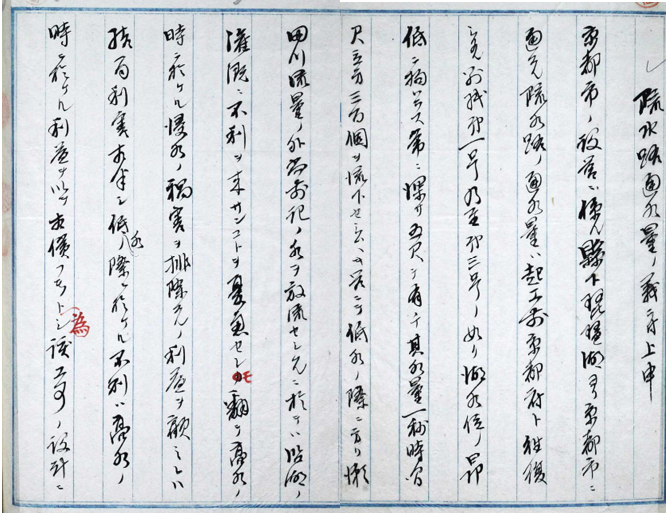 疏水路通水量ノ義ニ付上申
京都市ノ設営ニ係ル縣下琵琶湖ヨリ京都市ニ
通スル疏水路ノ通水量ハ起工前京都府ト往復
シ元別紙第一号乃至第三号ノ如ク湖水位ノ昂
低ニ拘ハラス常ニ深サ五尺ヲ有チ其水量一秒時間
尺立方三百個ヲ流下セシムル 低水ノ際ニ方リ
田川流量ノ外尚前記ノ水ヲ放流セシムルニ於テハ沿湖ノ
灌漑ニ不利ヲ来サンコトヲ憂慮セシモ翻テ高水ノ
時ニ於ケル浸水ノ禍害ヲ排除スルノ利益ヲ顧ミレハ
結局利害相半シ低水ノ際ニ於ケル不利ハ高水ノ
時ニ於ケル利益ヲ以テ相償フモノト為シ該工事ノ設計ニ